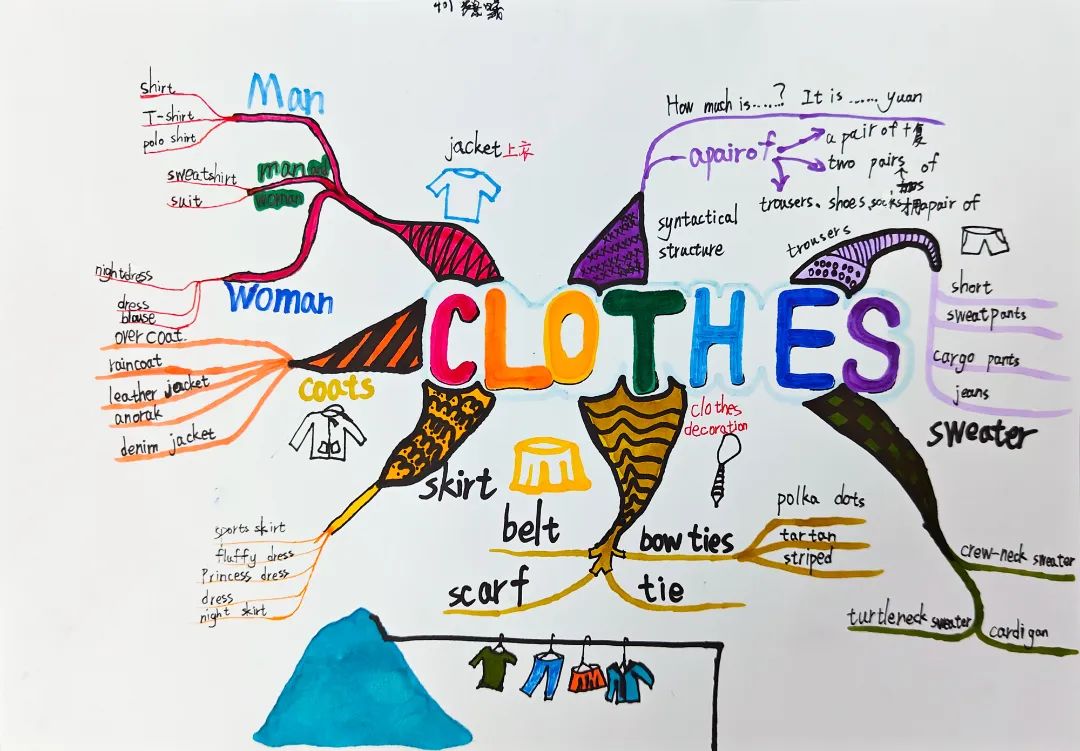 401
Man
shirt
T-shirt
polo shirt
man and
woman
sweatshirt
suit
Woman
nightdress
dress
blouse
jacket上衣
How much is......? It is ...... yuan
apair of
a pair of +复
two pairs of
加s
trousers、shoes、socks用apair of
syntactical
structure
trousers
short
sweatpants
cargo pants
jeans
CLOTHES
coats
over coat
raincoat
leather jacket
anorak
denim jacket
skirt
sports skirt
fluffy dress
Princess dress
dress
night skirt
clothes
decoration
belt
scarf
bow ties
tie
polka dots
tartan
striped
sweater
crew-neck sweater
turtleneck sweater
cardigan